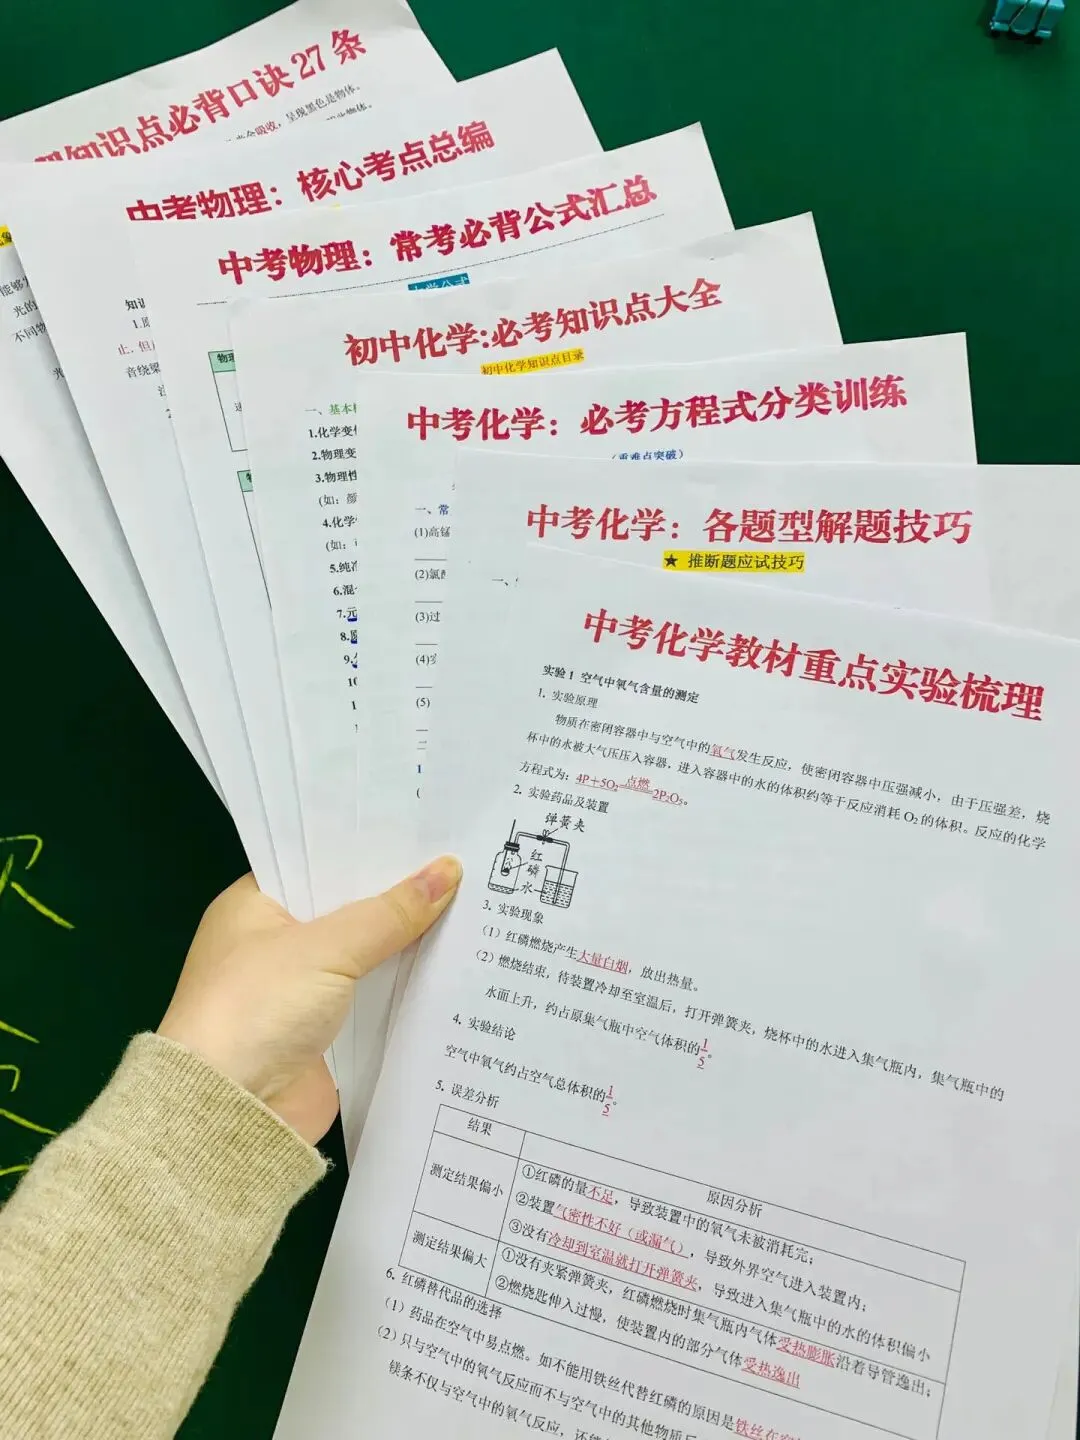 知识点必背口诀27条
中考物理：核心考点总编
中考物理：常考必背公式汇总
力学公式
初中化学:必考知识点大全
初中化学知识点目录
一、基本
1.化学变
2.物理变
3.物理性
(如：颜
4.化学
(如：
5.纯
6.混
7.元
8.
9.
10
中考化学：必考方程式分类训练
（重难点突破）
一、常
(1)高锰
(2)氯
(3)过
(4)
(5)
中考化学：各题型解题技巧
★ 推断题应试技巧
中考化学教材重点实验梳理
实验1 空气中氧气含量的测定
1. 实验原理
物质在密闭容器中与空气中的氧气发生反应，使密闭容器中压强减小，由于压强差，烧
杯中的水被大气压压入容器，进入容器中的水的体积约等于反应消耗 O₂的体积。反应的化学
方程式为：4P＋5O₂ 点燃 2P₂O₅。
2. 实验药品及装置
弹簧夹
红磷
水
3. 实验现象
（1）红磷燃烧产生大量白烟，放出热量。
（2）燃烧结束，待装置冷却至室温后，打开弹簧夹，烧杯中的水进入集气瓶内，集气瓶中的
水面上升，约占原集气瓶中空气体积的1/5。
4. 实验结论
空气中氧气约占空气总体积的1/5。
5. 误差分析
结果 原因分析
测定结果偏小 ①红磷的量不足，导致装置中的氧气未被消耗完；
②装置气密性不好（或漏气），导致外界空气进入装置内；
③没有冷却到室温就打开弹簧夹，导致进入集气瓶中的水的体积偏小
测定结果偏大 ①没有夹紧弹簧夹，红磷燃烧时集气瓶内气体受热膨胀沿着导管逸出；
②燃烧匙伸入过慢，使装置内的部分气体受热逸出
6. 红磷替代品的选择
（1）药品在空气中易点燃。如不能用铁丝代替红磷的原因是铁丝在
（2）只与空气中的氧气反应而不与空气中的其他物质
镁条不仅与空气中的氧气反应，还